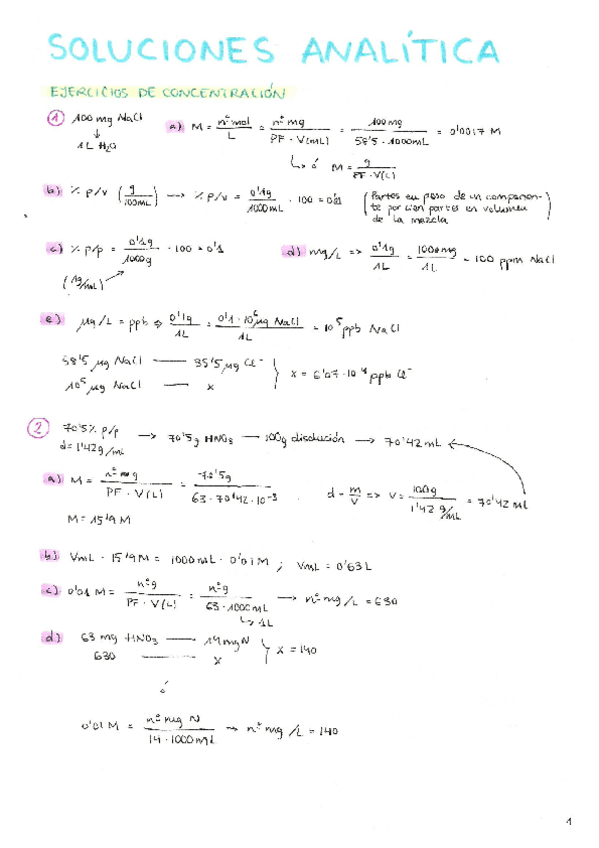 SOLUCIONES ANALÍTICA
EJERCICIOS DE CONCENTRACIÓN
① 100 mg NaCl
↓
1L H₂O
a) M = nº mol / L = nº mg / PF · V(mL) = 100 mg / 58'5 · 1000mL = 0'0017 M
↳ ó M = g / PF · V(L)
b) % p/v (g / 100mL) → % p/v = 0'1g / 1000mL · 100 = 0'01 (Partes en peso de un componen-
te por cien partes en volumen
de la mezcla)
c) % p/p = 0'1g / 1000g · 100 = 0'1
(1g/mL)
d) mg/L => 0'1g / 1L = 100mg / 1L = 100 ppm NaCl
e) µg/L = ppb => 0'1g / 1L = 0'1 · 10⁶ µg NaCl / 1L = 10⁵ ppb NaCl
58'5 µg NaCl —— 35'5 µg Cl⁻
10⁵ µg NaCl —— x } x = 6'07 · 10⁴ ppb Cl⁻
② 70'5% p/p
d = 1'42 g/mL → 70'5g HNO₃ → 100g disolución → 70'42 mL
a) M = nº mg / PF · V(L) = 70'5g / 63 · 70'42 · 10⁻³ d = m / V => V = 100g / 1'42 g/mL = 70'42 mL
M = 15'9 M
b) VmL · 15'9 M = 1000 mL · 0'01 M ; VmL = 0'63 L
c) 0'01 M = nº g / PF · V(L) = nº g / 63 · 1000 mL → nº mg/L = 630
↳ 1L
d) 63 mg HNO₃ —— 14 mg N
630 —— x } x = 140
ó
0'01 M = nº mg N / 14 · 1000 mL → nº mg/L = 140
1